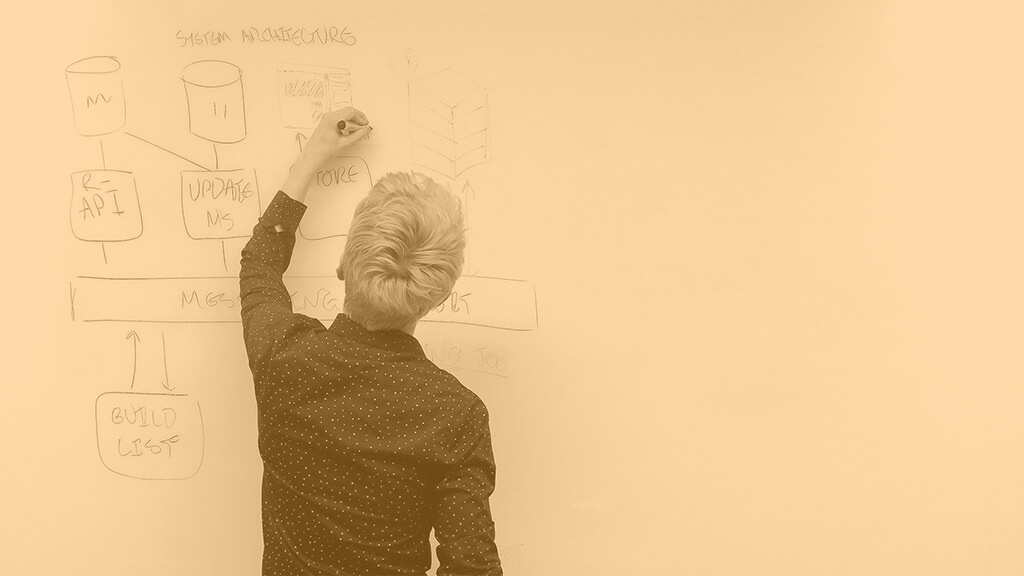 SYSTEM ARCHITECTURE
M
11
R-
API
UPDATE
MS
TORE
MES ING
BUILD
LIST